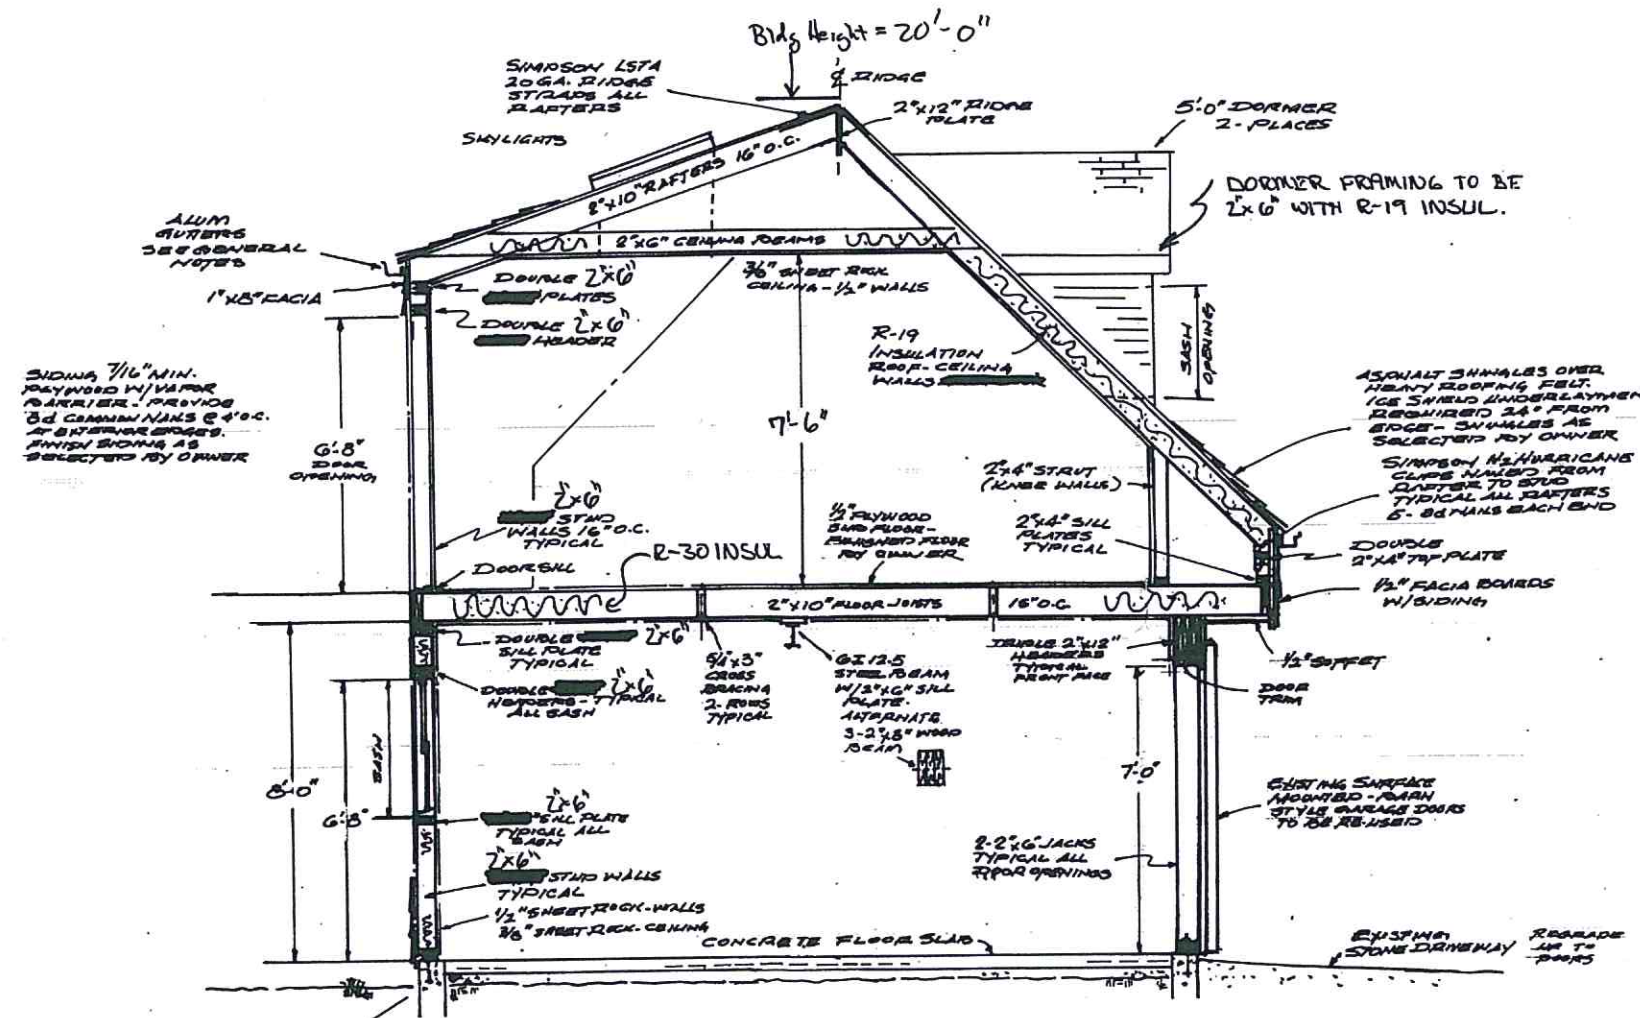 Bldg Height = 20'-0"
SIMPSON LSTA
20 GA. RIDGE
STRAPS ALL
RAFTERS
℄ RIDGE
2"x12" RIDGE
PLATE
5'-0" DORMER
2- PLACES
SKYLIGHTS
2"x10" RAFTERS 16" O.C.
DORMER FRAMING TO BE
2"x6" WITH R-19 INSUL.
ALUM
GUTTERS
SEE GENERAL
NOTES
1"x8" FACIA
2"x6" CEILING BEAMS
3/8" SHEET ROCK
CEILING - 1/2" WALLS
DOUBLE 2"x6"
PLATES
DOUBLE 2"x6"
HEADER
R-19
INSULATION
ROOF-CEILING
WALLS
SASH
OPENING
SIDING 7/16" MIN.
PLYWOOD W/VAPOR
BARRIER - PROVIDE
8d COMMON NAILS @ 4" O.C.
AT EXTERIOR EDGES.
FINISH SIDING AS
SELECTED BY OWNER
6'-8"
DOOR
OPENING
7'-6"
ASPHALT SHINGLES OVER
HEAVY ROOFING FELT.
ICE SHIELD UNDERLAYMEN
REQUIRED 24" FROM
EDGE - SHINGLES AS
SELECTED BY OWNER
SIMPSON H2 HURRICANE
CLIPS NAILED FROM
RAFTER TO STUD
TYPICAL ALL RAFTERS
5- 8d NAILS EACH END
2"x4" STRUT
(KNEE WALLS)
2"x6"
STUD
WALLS 16" O.C.
TYPICAL
1/2" PLYWOOD
SUB FLOOR -
FINISHED FLOOR
BY OWNER
2"x4" SILL
PLATES
TYPICAL
DOUBLE
2"x4" TOP PLATE
R-30 INSUL
DOOR SILL
1/2" FACIA BOARDS
W/SIDING
2"x10" FLOOR JOISTS 16" O.C.
DOUBLE 2"x6"
SILL PLATE
TYPICAL
DOUBLE 2"x6"
HEADERS - TYPICAL
ALL SASH
CROSS
BRACING
2-ROWS
TYPICAL
6I 12.5
STEEL BEAM
W/2"x6" SILL
PLATE.
ALTERNATE
3-2"x8" WOOD
BEAM
TRIPLE 2"x12"
HEADERS
TYPICAL
FRONT FACE
1/2" SOFFET
DOOR
TRIM
SASH
8'-0"
6'-8"
7'-0"
2"x6"
SILL PLATE
TYPICAL ALL
SASH
EXISTING SURFACE
MOUNTED - BARN
STYLE GARAGE DOORS
TO BE RE-USED
2-2"x6" JACKS
TYPICAL ALL
DOOR OPENINGS
2"x6"
STUD WALLS
TYPICAL
1/2" SHEET ROCK - WALLS
3/8" SHEET ROCK - CEILING
CONCRETE FLOOR SLAB
EXISTING
STONE DRIVEWAY
REGRADE
UP TO
DOORS